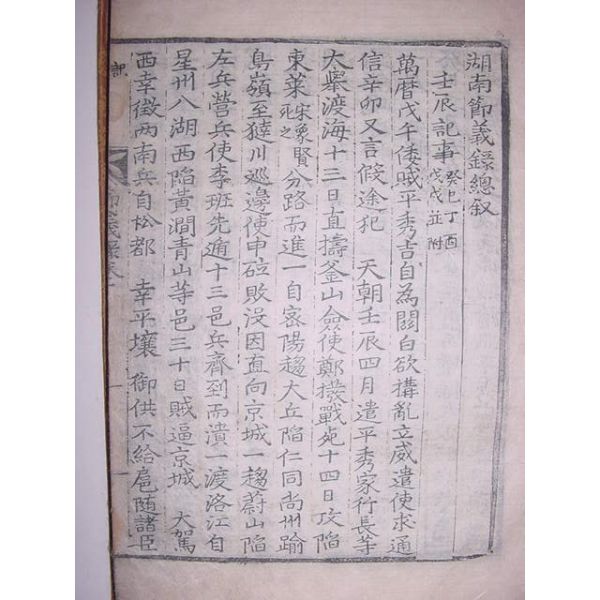 湖南節義錄總叙
壬辰記事 癸巳丁酉戊戌並附
萬曆戊子倭賊平秀吉自為關白欲搆亂立威遣使求通
信辛卯又言假途犯 天朝壬辰四月遣平秀家行長等
大舉渡海十三日直擣釜山僉使鄭撥戰死十四日攻陷
東萊 宋象賢死之 分路而進一自密陽趨大丘陷仁同尚州踰
鳥嶺至㺚川巡邊使申砬敗沒因直向京城一趨蔚山陷
左兵營兵使李珏先遁十三邑兵齊到而潰一渡洛江自
星州八湖西陷黃澗青山等邑三十日賊逼京城 大駕
西幸徵两南兵自松都 幸平壤 御供不給扈随諸臣
節義錄卷一